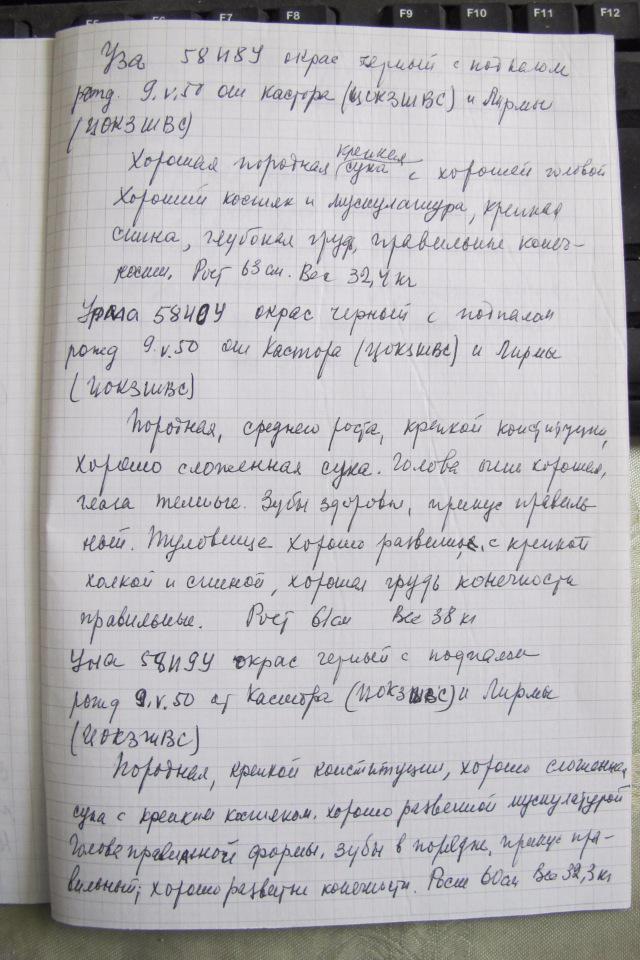 F6 F7 F8 F9 F10 F11 F12
Уза 58И8У окрас черный с подпалом
рожд. 9.V.50 от Кастора (ЦОКЗШВС) и Лирмы
(ЦОКЗШВС)
Хорошая породная крепкая сука с хорошей головой
Хороший костяк и мускулатура, крепкая
спина, глубокая грудь, правильные конеч-
ности. Рост 63 см. Вес 32,4 кг
58И У окрас черный с подпалом
рожд 9.V.50 от Кастора (ЦОКЗШВС) и Лирмы
(ЦОКЗШВС)
Породная, среднего роста, крепкой конституции,
хорошо сложенная сука. Голова хорошая,
глаза темные. Зубы здоровы, прикус правиль-
ный. Туловище хорошо развитое, с крепкой
холкой и спиной, хорошая грудь конечности
правильные. Рост 61 см Вес 38 кг
Уна 58И9У окрас черный с подпалом
рожд 9.V.50 от Кастора (ЦОКЗШВС) и Лирмы
(ЦОКЗШВС)
Породная, крепкой конституции, хорошо сложенная
сука с крепким костяком. хорошо развитой мускулатурой
Голова правильной формы. Зубы в порядке, прикус пра-
вильный; хорошо развитые конечности. Рост 60 см Вес 32,3 кг